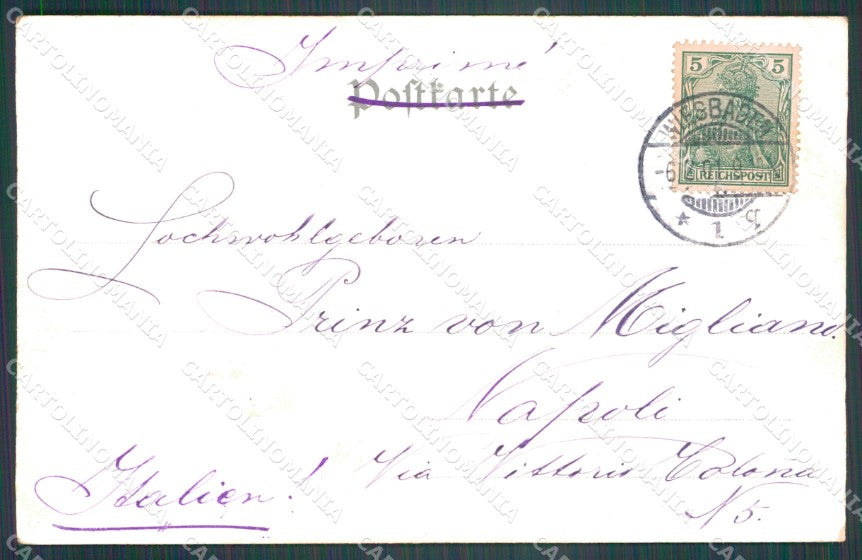 Imprimé
Postkarte
5 5
REICHSPOST
WIESBADEN
1 b
Hochwohlgeboren
Prinz von Migliano.
Napoli
Via Vittoria Colona
N 5.
Italien!
CARTOLINOMANIA